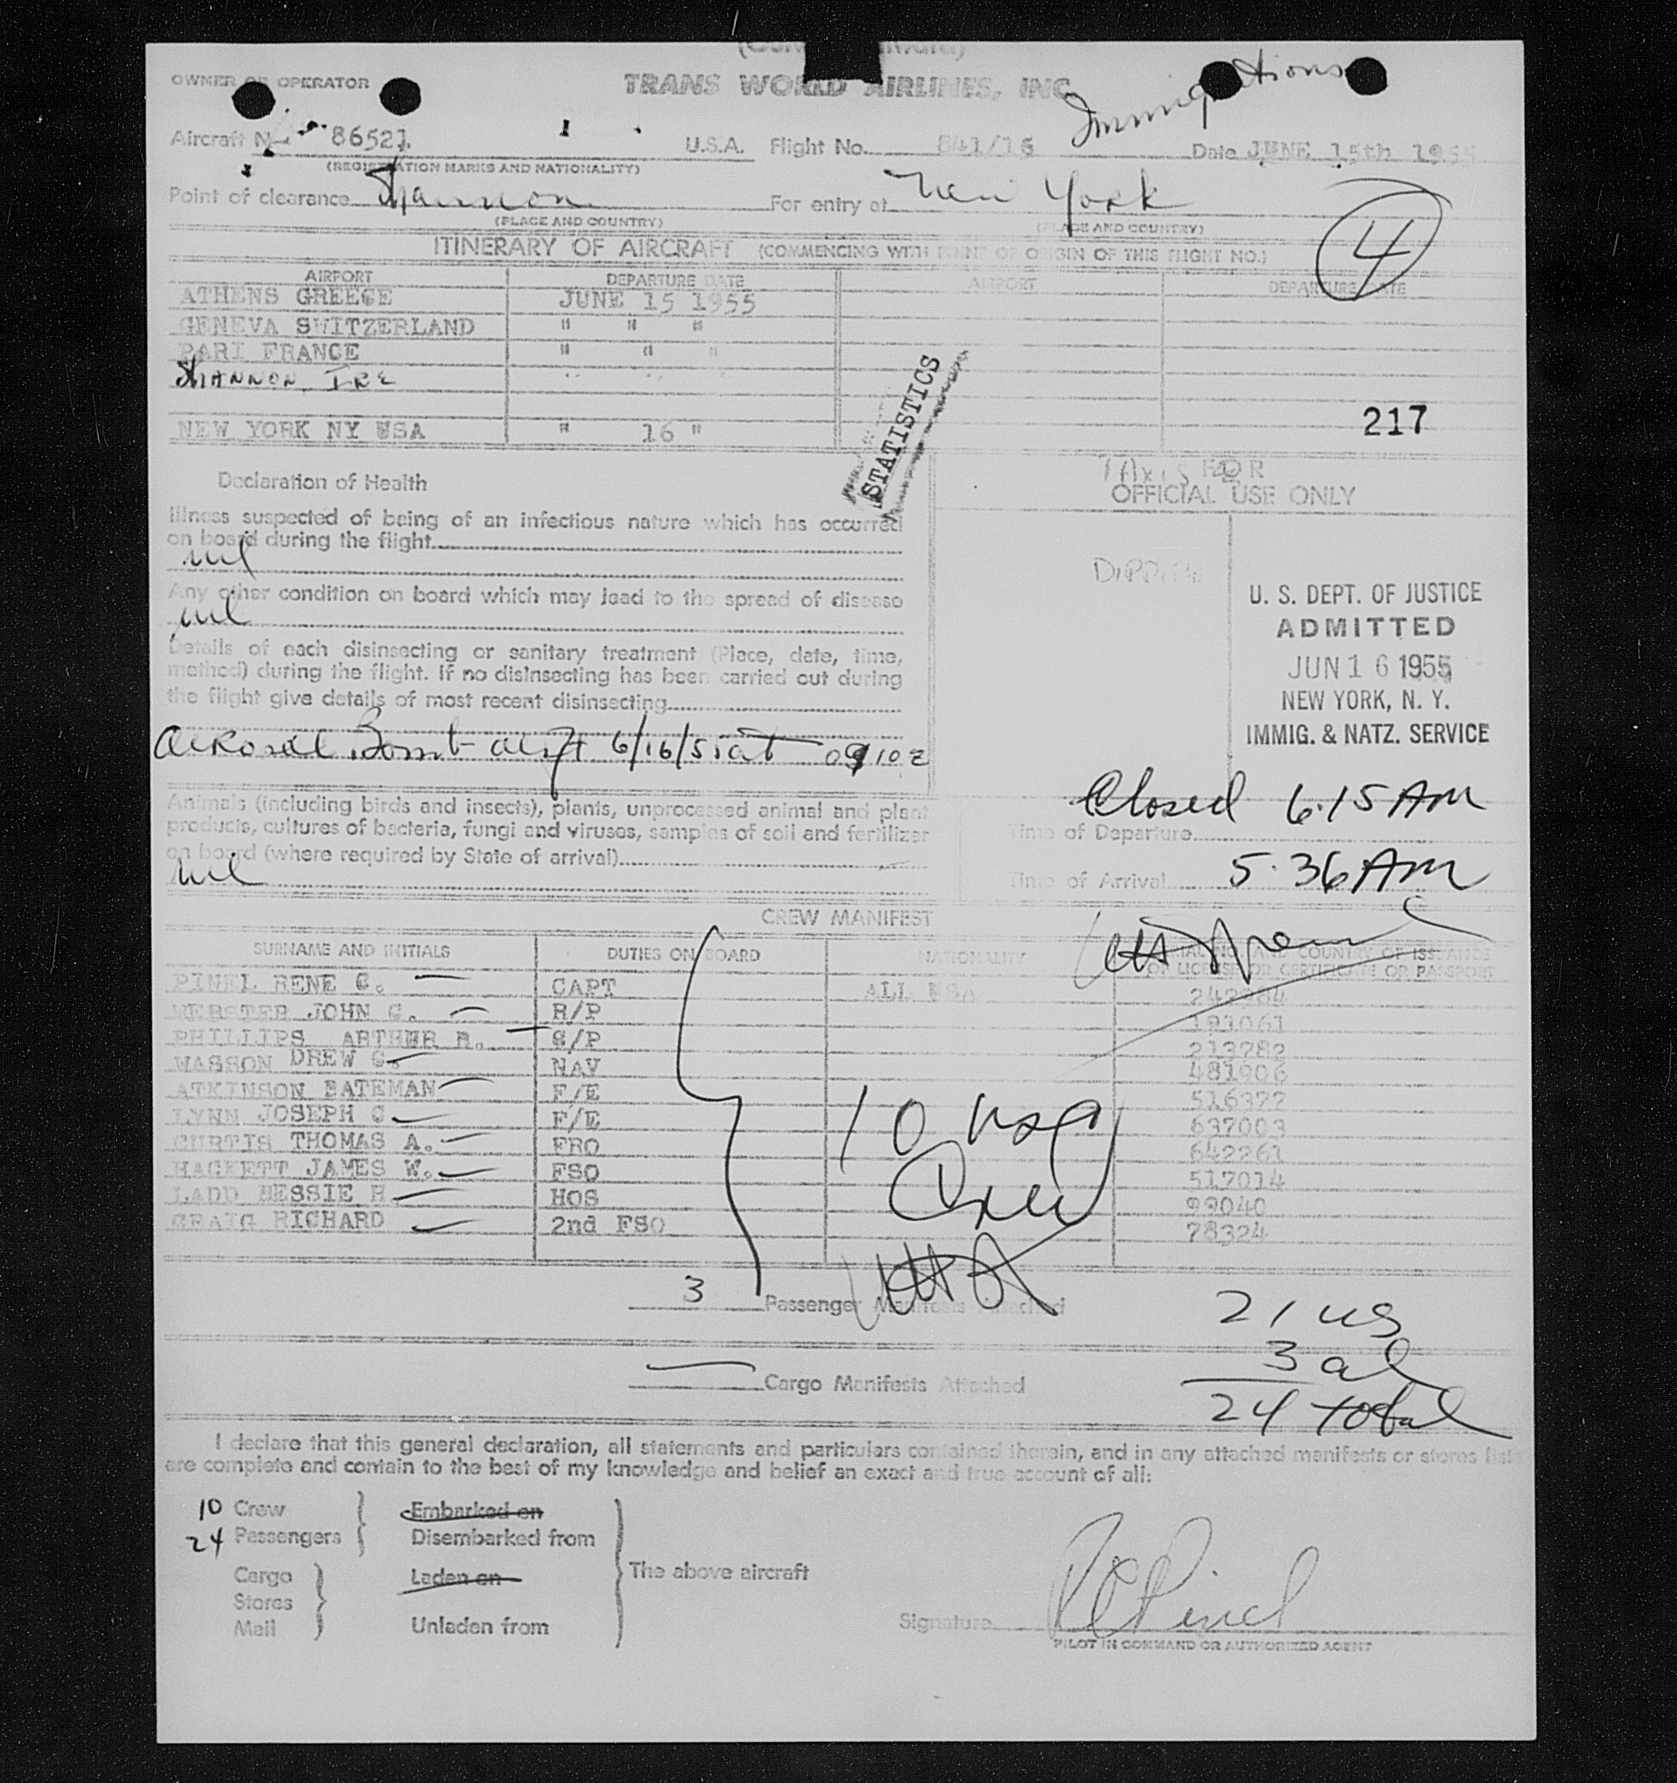 OWNER OR OPERATOR
TRANS WORLD AIRLINES, INC
Immigrations
Aircraft No. 86521 U.S.A. Flight No. 841/15 Date JUNE 15th 1955
(REGISTRATION MARKS AND NATIONALITY)
Point of clearance Shannon For entry at New York
(PLACE AND COUNTRY) (PLACE AND COUNTRY)
4
ITINERARY OF AIRCRAFT (COMMENCING WITH POINT OF ORIGIN OF THIS FLIGHT NO.)
AIRPORT DEPARTURE DATE AIRPORT DEPARTURE DATE
ATHENS GREECE JUNE 15 1955
GENEVA SWITZERLAND " " "
PARI FRANCE " " "
SHANNON, IRE " " "
STATISTICS
217
NEW YORK NY USA " 16 "
Declaration of Health
FOR
OFFICIAL USE ONLY
Illness suspected of being of an infectious nature which has occurred
on board during the flight
nil
Any other condition on board which may lead to the spread of disease
nil
Details of each disinsecting or sanitary treatment (Place, date, time,
method) during the flight. If no disinsecting has been carried out during
the flight give details of most recent disinsecting
Aerosol Bomb 6/16/5 at 0910z
U. S. DEPT. OF JUSTICE
ADMITTED
JUN 16 1955
NEW YORK, N. Y.
IMMIG. & NATZ. SERVICE
Animals (including birds and insects), plants, unprocessed animal and plant
products, cultures of bacteria, fungi and viruses, samples of soil and fertilizer
on board (where required by State of arrival)
nil
Closed 6.15 AM
Time of Departure
Time of Arrival 5.36 AM
CREW MANIFEST
SURNAME AND INITIALS DUTIES ON BOARD NATIONALITY SERIAL NO. AND COUNTRY OF ISSUANCE
OF LICENSE OR CERTIFICATE OR PASSPORT
PINEL RENE C. CAPT ALL USA 242984
WEBSTER JOHN C. R/P 191061
PHILLIPS ARTHUR R. S/P 213282
WASSON DREW G. NAV 481906
ATKINSON BATEMAN F/E 516322
LYNN JOSEPH C F/E 637003
CURTIS THOMAS A. FRO 642261
HACKETT JAMES W. FSO 517014
LADD BESSIE H HOS 99040
CRAIG RICHARD 2nd FSO 78324
10 usa
Crew
3 Passenger Manifests Attached
21 us
3 al
24 total
Cargo Manifests Attached
I declare that this general declaration, all statements and particulars contained therein, and in any attached manifests or stores lists
are complete and contain to the best of my knowledge and belief an exact and true account of all:
10 Crew Embarked on
24 Passengers Disembarked from
Cargo Laden on The above aircraft
Stores
Mail Unladen from
Signature R C Pinel
PILOT IN COMMAND OR AUTHORIZED AGENT